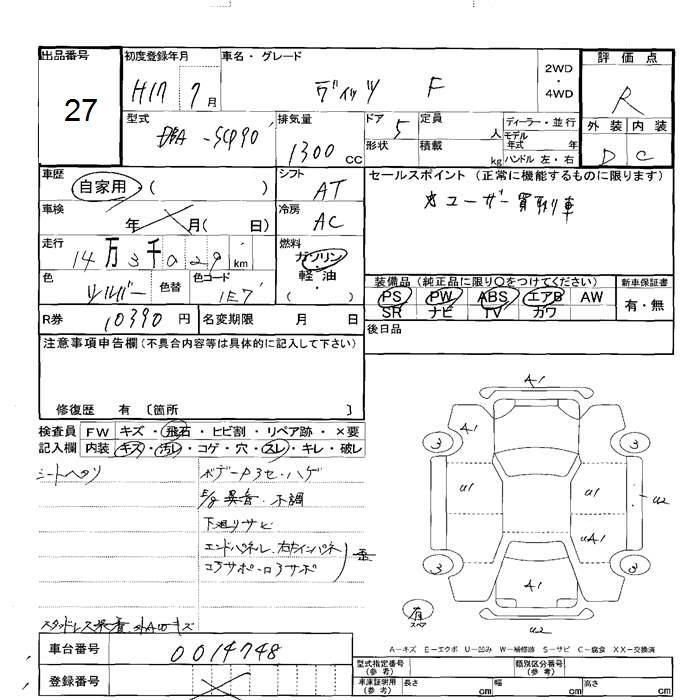 出品番号 初度登録年月 車名・グレード 2WD・4WD 評価点
27 H17 7月 ヴィッツ F R
型式 DBA-SCP90 排気量 1300 CC ドア 5 定員 人 ディーラー・並行 外装 内装
形状 積載 kg モデル年式 年 ハンドル 左・右 D C
車歴 自家用・( ) シフト AT セールスポイント (正常に機能するものに限ります)
車検 年 月( 日) 冷房 AC ☆ユーザー買取り車
走行 14万3千029km 燃料 ガソリン・軽油 ( )
色 シルバー 色替 色コード 1E7
装備品 (純正品に限り○をつけてください) 新車保証書
PS PW ABS エアB AW 有・無
SR ナビ TV カワ
R券 10390円 名変期限 月 日 後日品
注意事項申告欄 (不具合内容等は具体的に記入して下さい)
修復歴 有 〔箇所 〕
検査員 FW キズ・飛石・ヒビ割・リペア跡・×要
記入欄 内装 キズ・汚レ・コゲ・穴・スレ・キレ・破レ
シートヘタリ
E/g 異音・不調
下廻りサビ
エンドパネル、右左インパネ
A1
3 3
U1 U1 U2
UA1
3 3
A1
有 スペア
U2
A-キズ E-エクボ U-凹み W-補修跡 S-サビ C-腐食 XX-交換済
車台番号 0014748
登録番号
型式指定番号 (参考) 類別区分番号 (参考)
車庫証明用 (参考) 長さ cm 幅 cm 高さ cm